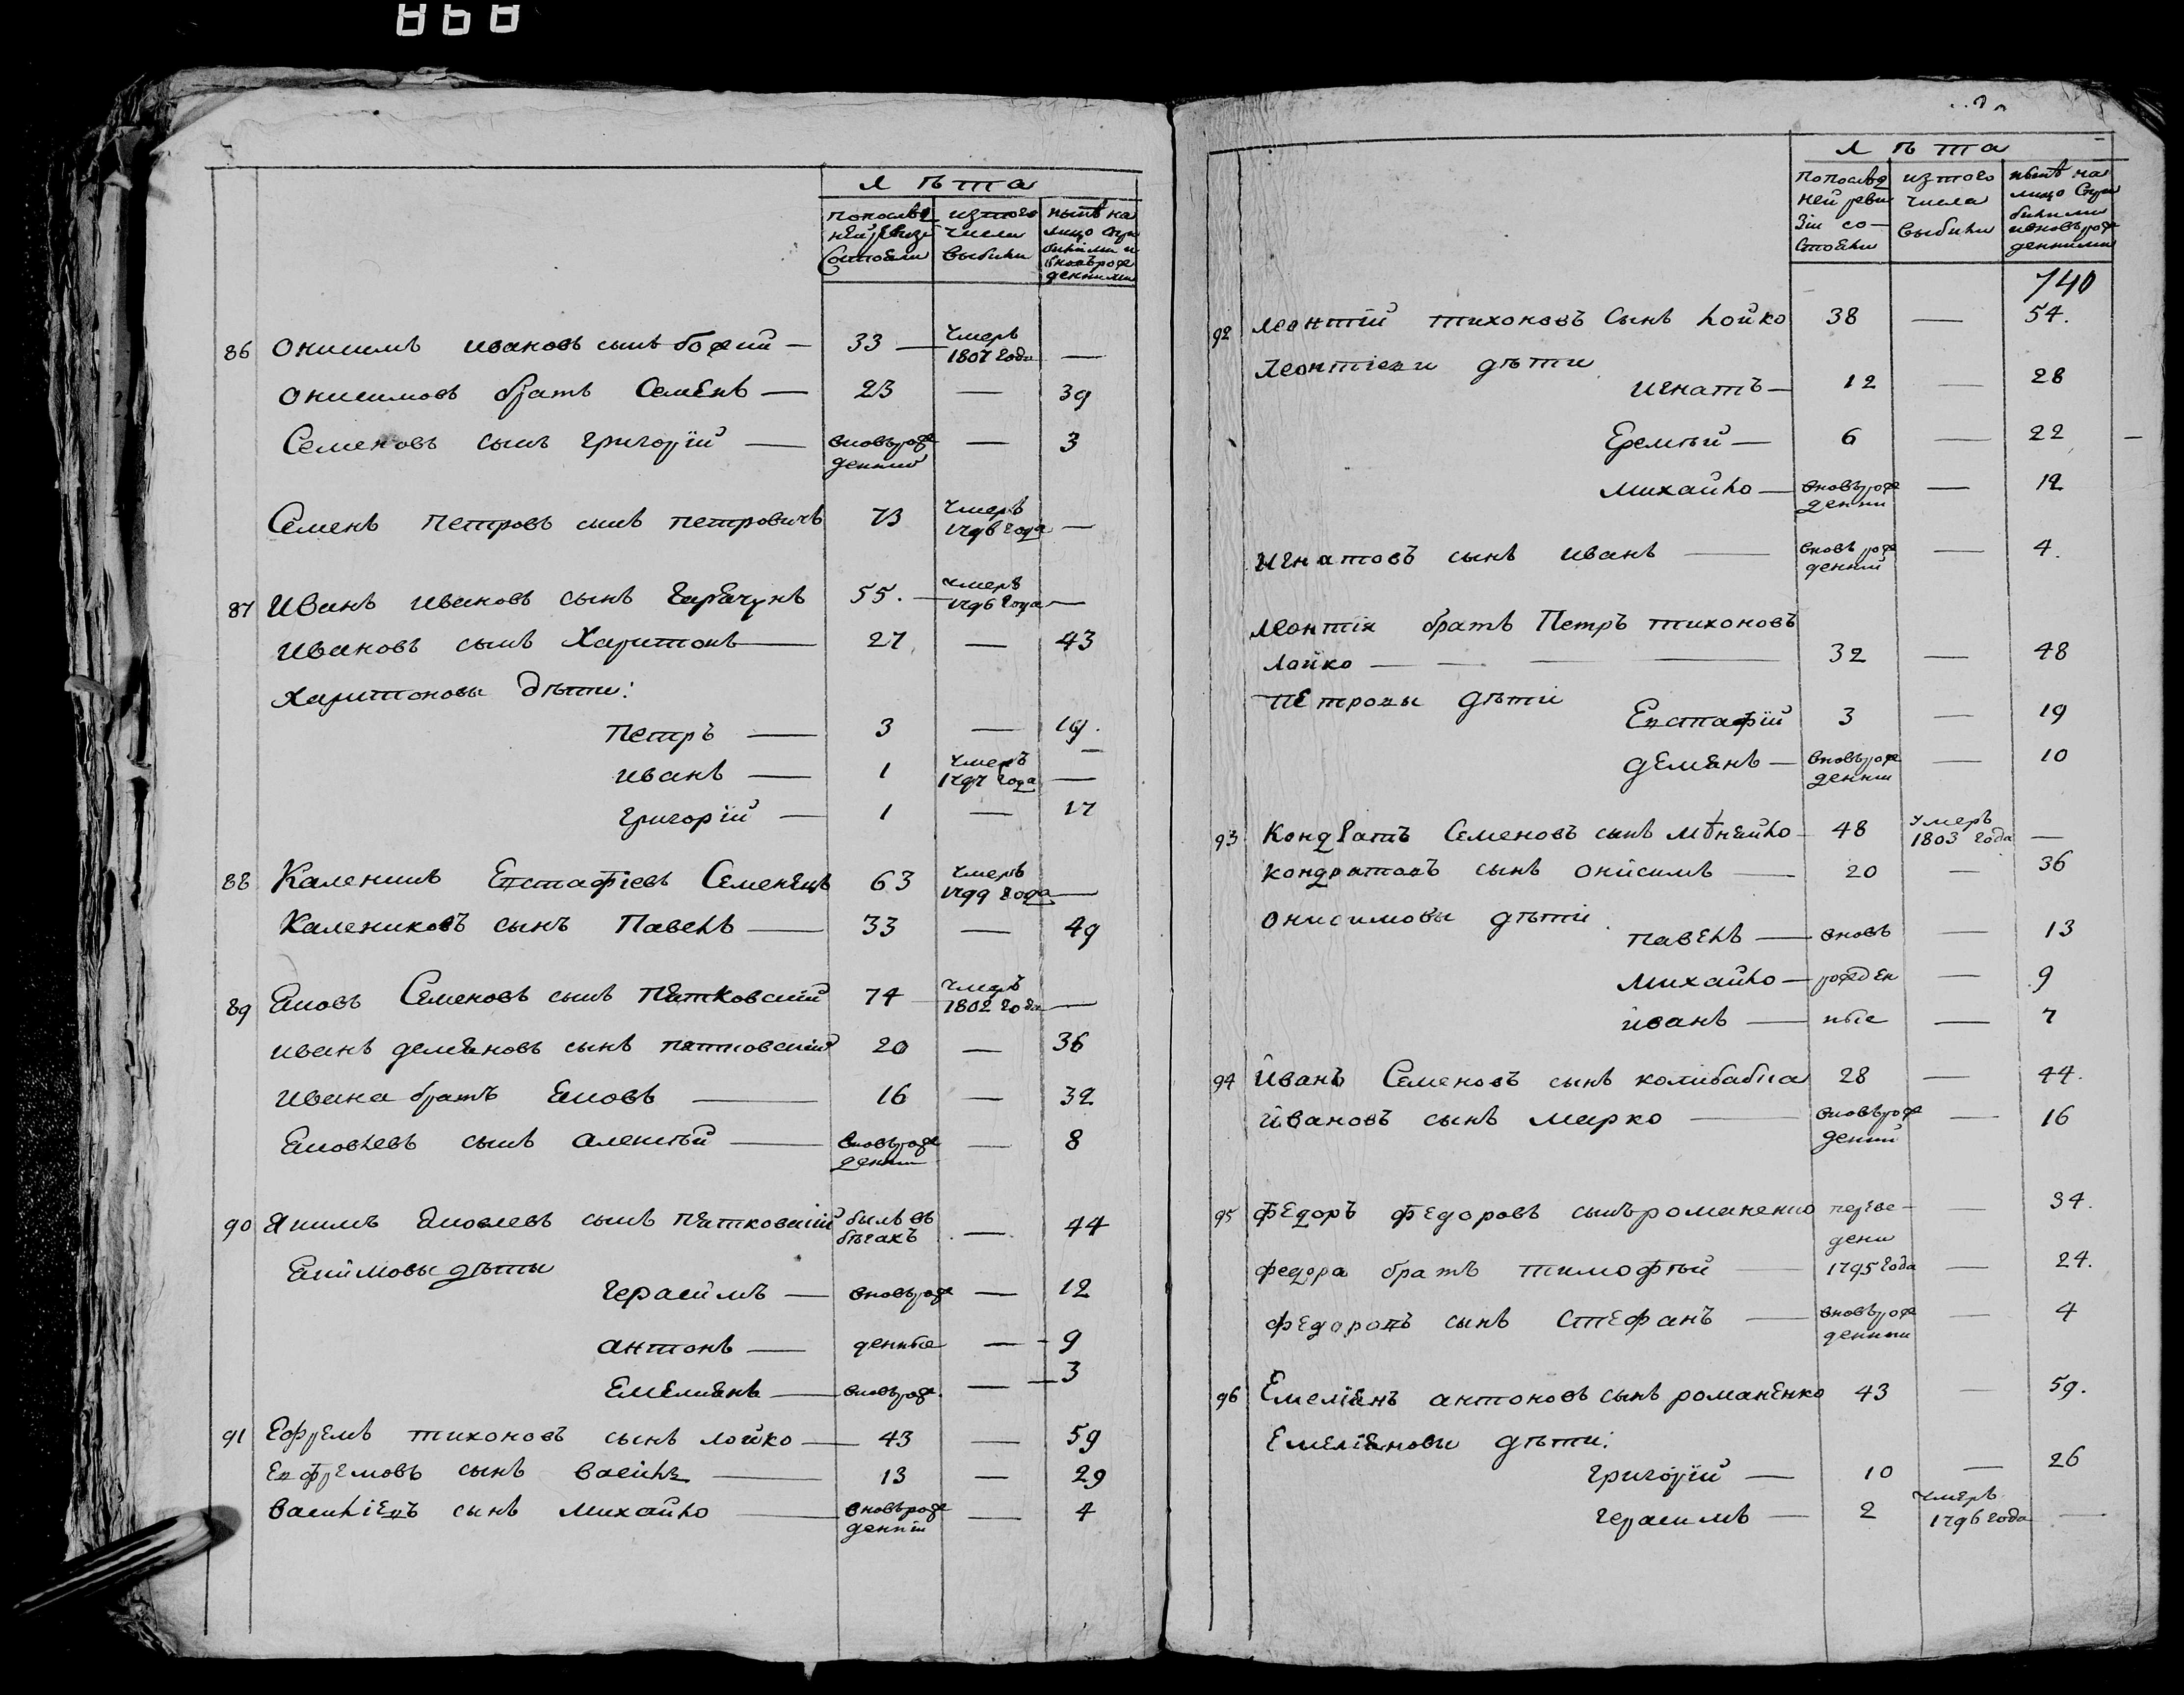 868
лѣта
попослѣд
ней ревизіи
состояли
изтого
числа
выбыли
нынѣ на
лицо
вновьрож
денными
86 Онисимъ Ивановъ сынъ — 33 — умеръ
1807 года —
Онисимовъ братъ Семенъ — 23 — 39
Семеновъ сынъ Григорій — вновьрож — 3
денній
Семенъ Петровъ сынъ Петровичъ 73 умеръ
1796 года —
87 Иванъ Ивановъ сынъ 55. — умеръ
1796 года —
Ивановъ сынъ Харитонъ — 27 — 43
Харитоновы дѣти:
Петръ — 3 — 19.
Иванъ — 1 умеръ
1797 года —
Григорій — 1 — 17
88 Каленикъ Евстафіевъ Семенецъ 63 умеръ
1799 года —
Калениковъ сынъ Павелъ — 33 — 49
89 Яковъ Семеновъ сынъ Пятковскій 74 умеръ
1802 года —
Иванъ Демяновъ сынъ Пятковскій 20 — 36
Ивана братъ Яковъ — 16 — 32
Яковлевъ сынъ Алексѣй — вновьрож — 8
денній
90 Якимъ Яковлевъ сынъ Пятковскій былъ въ
бѣгахъ — 44
Якимовы дѣты
Герасимъ — вновьрож — 12
Антонъ — денные — 9
Емелиянъ — вновьрож. — 3
91 Ефремъ Тихоновъ сынъ Лойко — 43 — 59
Евфремовъ сынъ Василь — 13 — 29
Василіевъ сынъ Михайло — вновьрож — 4
денній
лѣта
попослѣд
ней реви
зіи со-
стояли
изтого
числа
выбыли
нынѣ на
лицо
ивновьрож
денными
740
92 Леонтій Тихоновъ сынъ Лойко 38 — 54.
Леонтіеви дѣти
Игнатъ — 12 — 28
Еремѣй — 6 — 22
Михайло — вновьрож — 12
денни
Игнатовъ сынъ Иванъ — вновьрож — 4.
денній
Леонтія братъ Петръ Тихоновъ
Лойко — 32 — 48
Петровы дѣти
Евстафій 3 — 19
Демянъ — вновьрож — 10
денни
93 Кондратъ Семеновъ сынъ — 48 умеръ
1803 года —
Кондратовъ сынъ Онисимъ — 20 — 36
Онисимовы дѣти
Павелъ — вновь — 13
Михайло — рожден — 9
Иванъ — ные — 7
94 Иванъ Семеновъ сынъ Колибабка 28 — 44.
Ивановъ сынъ Марко — вновьрож — 16
денній
95 Федоръ Федоровъ сынъ Романенко переве- — 34.
дени
Федора братъ Тимофѣй — 1795 года — 24.
Федоровъ сынъ Стефанъ — вновьрож — 4
денни
96 Емеліянъ Антоновъ сынъ Романенко 43 — 59.
Емеліяновы дѣти:
Григорій — 10 — 26
Герасимъ — 2 умеръ
1796 года —